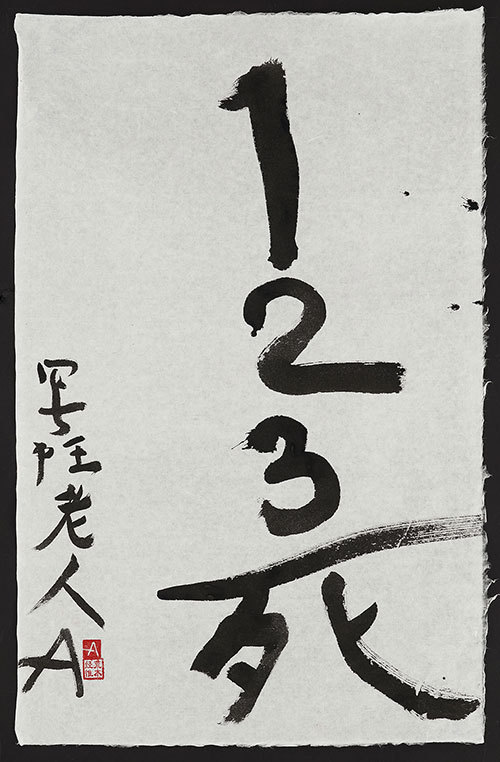 123死
老人A
A